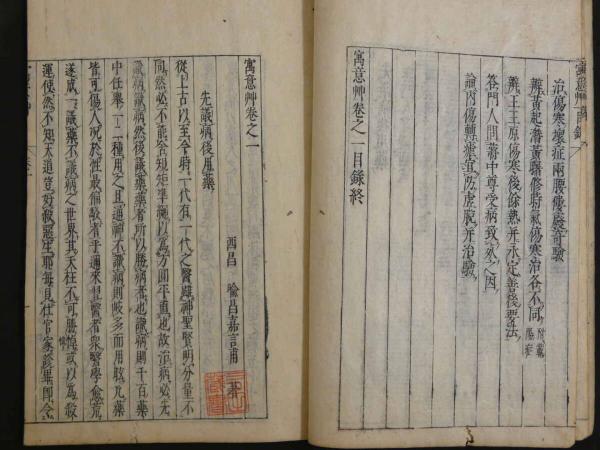 寓意艸卷之一目錄
治傷寒壞症兩腰僂廢奇驗
辨黃起潛黃曙修時氣傷寒治各不同
辨王玉原傷寒後餘熱并永定善後要法
答門人問蔣中尊受病致死之因
論內傷轉瘧宜防虛脫并治驗
寓意艸卷之一目錄終
寓意艸卷之一
西昌　喻昌嘉言甫　著
先議病後用藥
從上古以至今時一代有一代之醫雖神聖賢明分量不
同然必不能舍規矩準繩以爲方圓平直也故治病必先
識病識病然後議藥藥者所以勝病者也識病則千百藥
中任舉一二種用之且通神不識病則岐多而用眩凡藥
皆可傷人況於性最偏駁者乎邇來習醫者眾醫學愈荒
遂成一議藥不議病之世界其夭枉不可勝悼或以爲殺
運使然不知天道豈好殺惡生耶每見仕宦家診畢即令